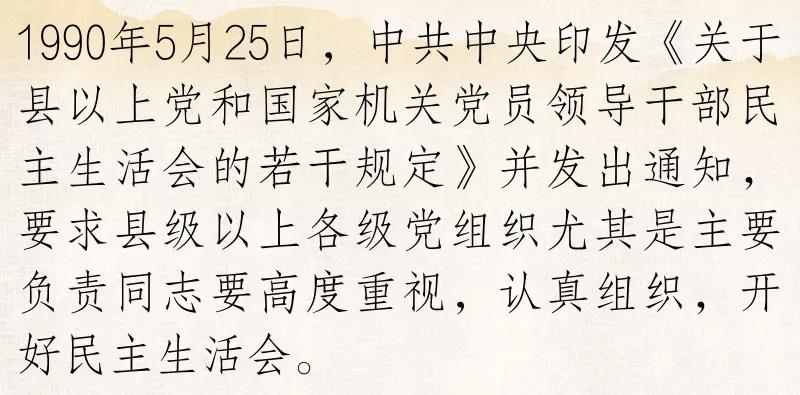 1990年5月25日，中共中央印发《关于
县以上党和国家机关党员领导干部民
主生活会的若干规定》并发出通知，
要求县级以上各级党组织尤其是主要
负责同志要高度重视，认真组织，开
好民主生活会。